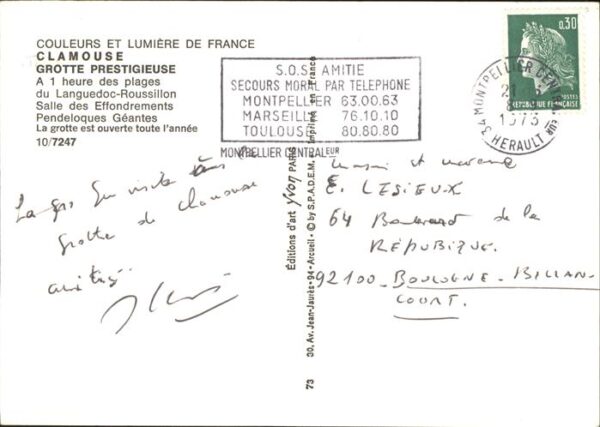 COULEURS ET LUMIÈRE DE FRANCE
CLAMOUSE
GROTTE PRESTIGIEUSE
A 1 heure des plages
du Languedoc-Roussillon
Salle des Effondrements
Pendeloques Géantes
La grotte est ouverte toute l'année
10/7247
S.O.S. AMITIE
SECOURS MORAL PAR TELEPHONE
MONTPELLIER 63.00.63
MARSEILLE 76.10.10
TOULOUSE 80.80.80
MONTPELLIER CENTRALEUR
0.30
POSTES
REPUBLIQUE FRANÇAISE
34 MONTPELLIER CENTRALEUR
1973
HERAULT
visite
grotte de Clamouse
Éditions d'art Yvon PARIS
Imprimé en France
30, Av. Jean-Jaurès • 94 - Arcueil • © by S.P.A.D.E.M.
73
et
E. LESIEUX
64 Boulevard de la
RÉPUBLIQUE.
92100 - BOULOGNE - BILLAN
COURT.